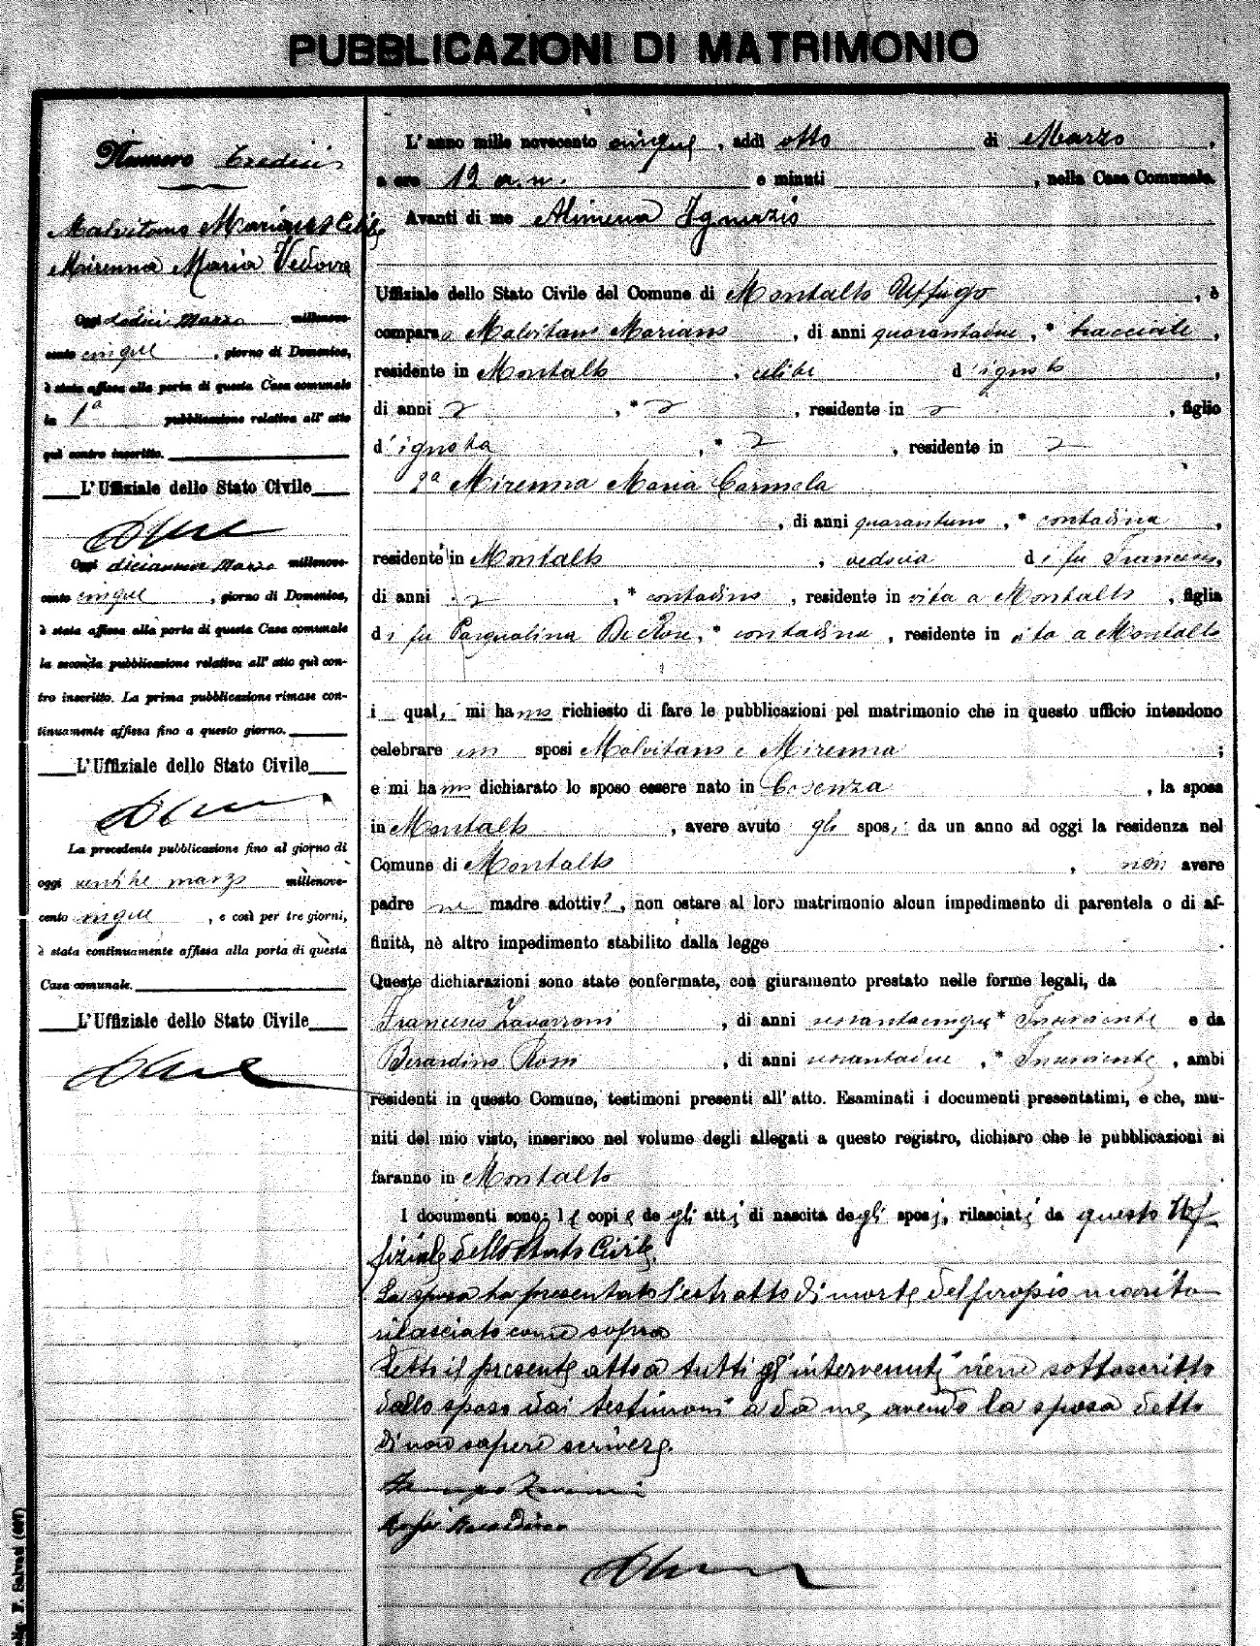 PUBBLICAZIONI DI MATRIMONIO
Numero Tredici
Malvitano Mariano Celibe
Mirenna Maria Vedova
Oggi dodici Marzo millenove-
cento cinque, giorno di Domenica,
è stata affissa alla porta di questa Casa comunale
la 1ª pubblicazione relativa all'atto
quì contro inscritto.
L'Uffiziale dello Stato Civile
Oggi diciannove Marzo millenove-
cento cinque, giorno di Domenica,
è stata affissa alla porta di questa Casa comunale
la seconda pubblicazione relativa all'atto quì con-
tro inscritto. La prima pubblicazione rimase con-
tinuamente affissa fino a questo giorno.
L'Uffiziale dello Stato Civile
La precedente pubblicazione fino al giorno di
oggi marzo millenove-
cento cinque, e così per tre giorni,
è stata continuamente affissa alla porta di questa
Casa comunale.
L'Uffiziale dello Stato Civile
L'anno mille novecento cinque, addì otto di Marzo,
a ore 12 a.m. e minuti , nella Casa Comunale.
Avanti di me Alimena Ignazio
Uffiziale dello Stato Civile del Comune di Montalto Uffugo, è
comparso Malvitano Mariano, di anni quarantadue, * bracciale,
residente in Montalto, celibe d'ignoto,
di anni , * , residente in , figlio
d'ignota * , residente in
2ª Mirenna Maria Carmela
, di anni quarantuno, * contadina,
residente in Montalto, vedova di fu Francesco,
di anni , * contadino, residente in vita a Montalto, figlia
di fu Pasqualina De Rose, * contadina, residente in vita a Montalto
i quali mi hanno richiesto di fare le pubblicazioni pel matrimonio che in questo ufficio intendono
celebrare essi sposi Malvitano e Mirenna;
e mi hanno dichiarato lo sposo essere nato in Cosenza, la sposa
in Montalto, avere avuto gli sposi da un anno ad oggi la residenza nel
Comune di Montalto, non avere
padre ne madre adottivi, non ostare al loro matrimonio alcun impedimento di parentela o di af-
finità, nè altro impedimento stabilito dalla legge.
Queste dichiarazioni sono state confermate, con giuramento prestato nelle forme legali, da
Francesco Zavarroni, di anni sessantacinque * Inserviente e da
Berardino Rossi, di anni sessantadue, * Inserviente, ambi
residenti in questo Comune, testimoni presenti all'atto. Esaminati i documenti presentatimi, e che, mu-
niti del mio visto, inserisco nel volume degli allegati a questo registro, dichiaro che le pubblicazioni si
faranno in Montalto
I documenti sono: le copie degli atti di nascita degli sposi, rilasciati da questo Uf-
fiziale dello Stato Civile.
La sposa ha presentato l'estratto di morte del proprio marito
rilasciato come sopra
Letto il presente atto a tutti gl'intervenuti viene sottoscritto
dallo sposo dai testimoni e da me, avendo la sposa detto
di non sapere scrivere.